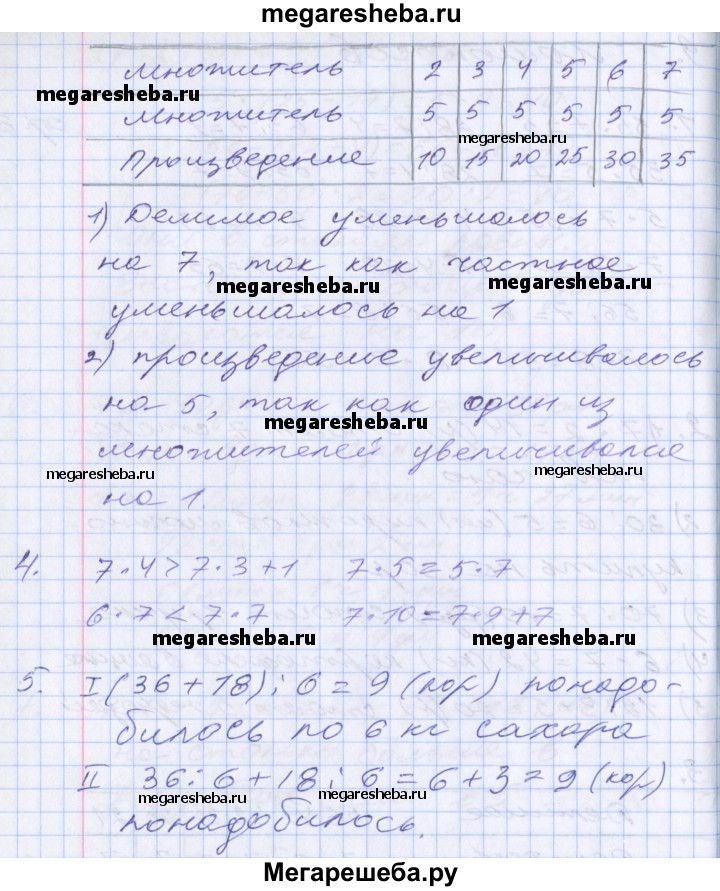 megaresheba.ru
множитель 2 3 4 5 6 7
megaresheba.ru
множитель 5 5 5 5 5 5
megaresheba.ru
Произведение 10 15 20 25 30 35
1) Делимое уменьшалось
на 7, так как частное
megaresheba.ru
уменьшалось на 1
2) произведение увеличивалось
на 5, так как один из
megaresheba.ru
множителей увеличивался
megaresheba.ru megaresheba.ru
на 1.
4. 7·4>7·3+1 7·5=5·7
6·7<7·7 7·10=7·9+7
megaresheba.ru megaresheba.ru
5. I (36+18):6=9 (кор) понадо-
билось по 6 кг сахара
II 36:6+18:6=6+3=9 (кор)
megaresheba.ru megaresheba.ru
понадобилось.
Мегарешеба.ру